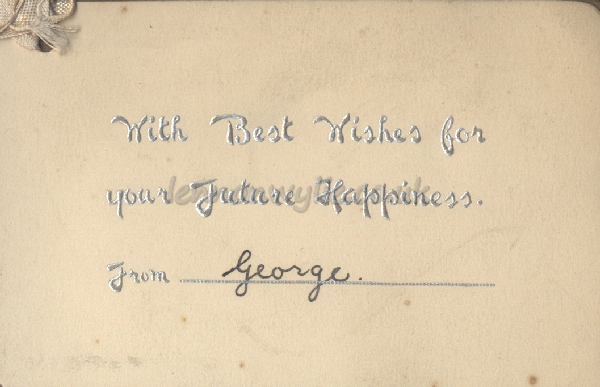 With Best Wishes for
your Future Happiness.
From George.